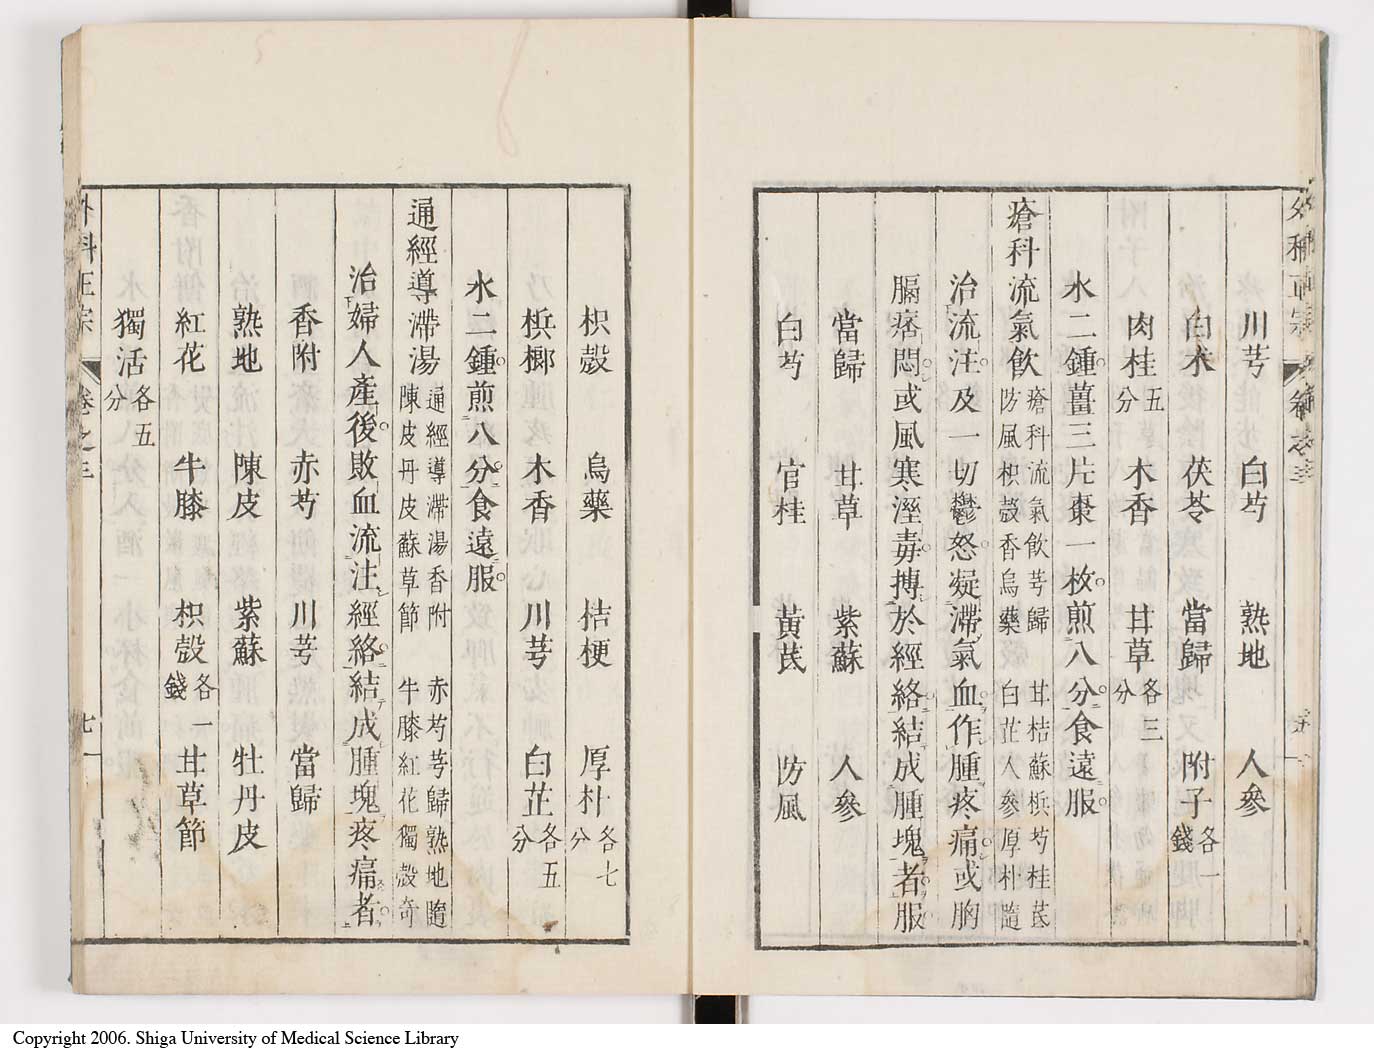 川芎　白芍　熟地　人參
白朮　茯苓　當歸　附子各一錢
肉桂五分　木香　甘草各三分
水二鍾薑三片棗一枚煎八分食遠服
瘡科流氣飲瘡科流氣飲芎歸甘桔蘇檳芍桂芪防風枳殼香烏藥白芷人參厚朴隨
治流注及一切鬱怒凝滯氣血作腫疼痛或胸
膈痞悶或風寒溼毒搏於經絡結成腫塊者服
當歸　甘草　紫蘇　人參
白芍　官桂　黃芪　防風
枳殼　烏藥　桔梗　厚朴各七分
檳榔　木香　川芎　白芷各五分
水二鍾煎八分食遠服
通經導滯湯通經導滯湯香附赤芍芎歸熟地隨陳皮丹皮蘇草節牛膝紅花獨殼奇
治婦人產後敗血流注經絡結成腫塊疼痛者
香附　赤芍　川芎　當歸
熟地　陳皮　紫蘇　牡丹皮
紅花　牛膝　枳殼各一錢　甘草節
獨活各五分
外科正宗　卷之三
Copyright 2006. Shiga University of Medical Science Library